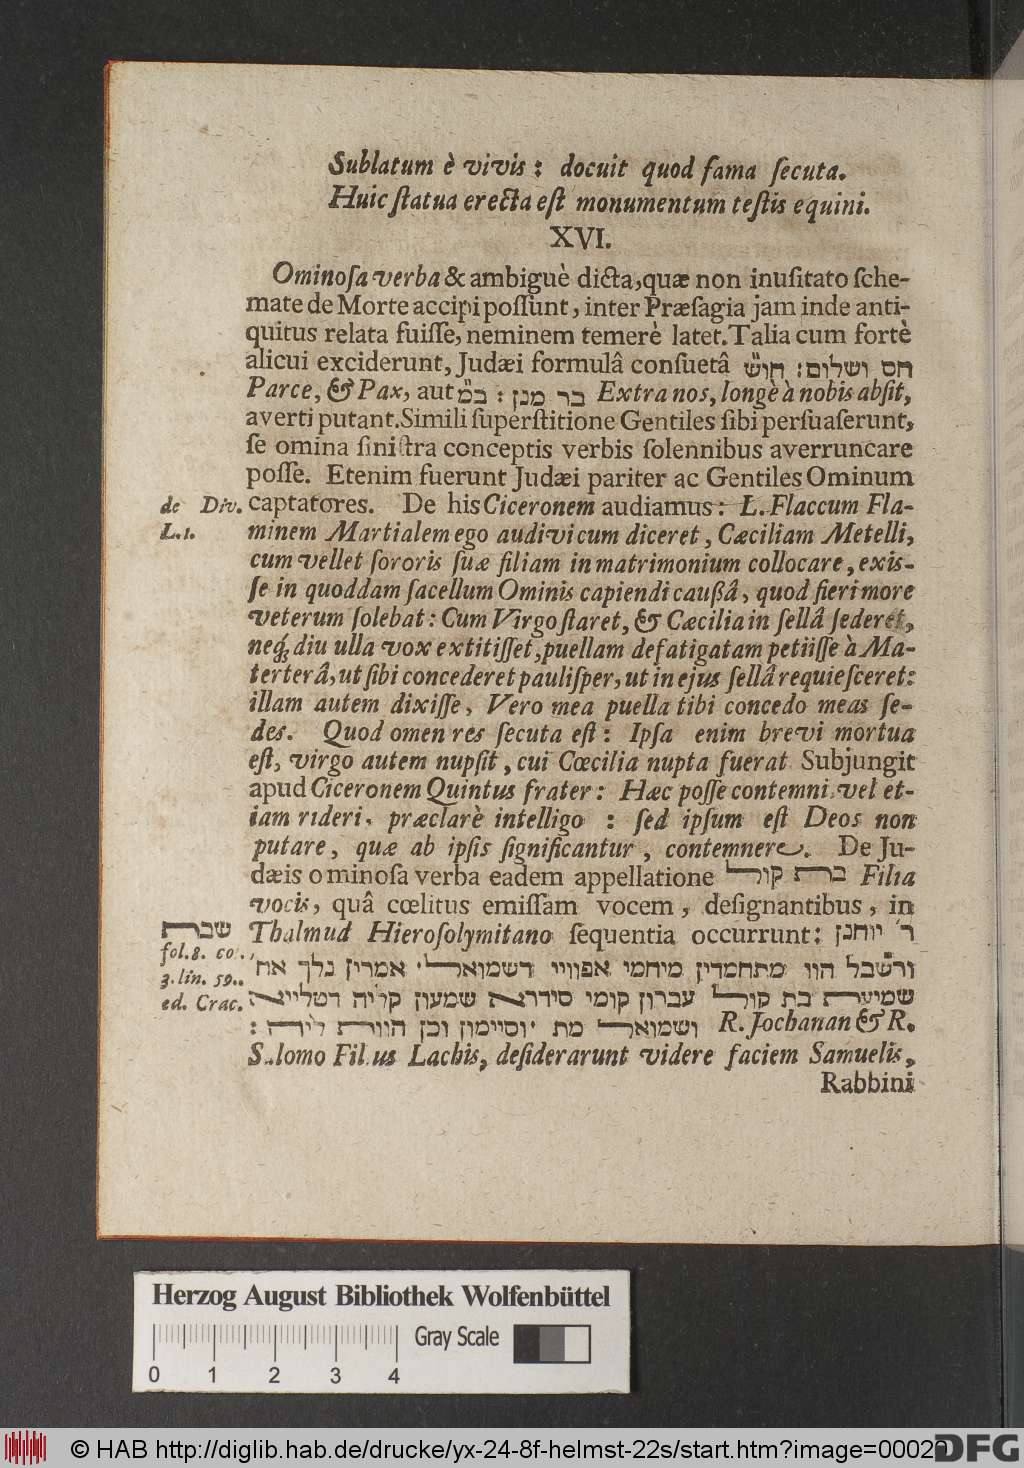 Sublatum è vivis: docuit quod fama ſecuta.
Huic ſtatua erecta eſt monumentum teſtis equini.
XVI.
Ominoſa verba & ambiguè dicta, quæ non inuſitato ſche-
mate de Morte accipi poſſunt, inter Præſagia jam inde anti-
quitus relata fuiſſe, neminem temerè latet. Talia cum fortè
alicui exciderunt, Judæi formulâ conſuetâ חס ושלום: חו״ש
Parce, & Pax, aut בר מנן: ב״מ Extra nos, longè à nobis abſit,
averti putant. Simili ſuperſtitione Gentiles ſibi perſuaſerunt,
ſe omina ſiniſtra conceptis verbis ſolennibus averruncare
poſſe. Etenim fuerunt Judæi pariter ac Gentiles Ominum
de Div. captatores. De his Ciceronem audiamus: L. Flaccum Fla-
L.1. minem Martialem ego audivi cum diceret, Cæciliam Metelli,
cum vellet ſororis ſuæ filiam in matrimonium collocare, exiſ-
ſe in quoddam ſacellum Ominis capiendi cauſſâ, quod fieri more
veterum ſolebat: Cum Virgo ſtaret, & Cæcilia in ſellâ ſederet,
neq́; diu ulla vox extitiſſet, puellam defatigatam petiiſſe à Ma-
terterâ, ut ſibi concederet pauliſper, ut in ejus ſellâ requieſceret:
illam autem dixiſſe, Vero mea puella tibi concedo meas ſe-
des. Quod omen res ſecuta eſt: Ipſa enim brevi mortua
eſt, virgo autem nupſit, cui Cœcilia nupta fuerat Subjungit
apud Ciceronem Quintus frater: Hæc poſſe contemni vel et-
iam rideri, præclarè intelligo: ſed ipſum eſt Deos non
putare, quæ ab ipſis ſignificantur, contemnere. De Ju-
dæis ominoſa verba eadem appellatione ברת קול Filia
vocis, quâ cœlitus emiſſam vocem, deſignantibus, in
שבת Thalmud Hieroſolymitano ſequentia occurrunt: ר' יוחנן
fol. 8. co.
3. lin. 59.
ed. Crac.
ורשבל הוו מתחמדין מיחמי אפוויי דשמואל' אמרין נלך אח'
שמיעת בת קול עברון קומי סידרא שמעון קליה דטלייא
ושמואל מת יוסיימון וכן הוות ליה: R. Jochanan & R.
Salomo Filius Lachis, deſiderarunt videre faciem Samuelis,
Rabbini
Herzog August Bibliothek Wolfenbüttel
Gray Scale
0 1 2 3 4
© HAB http://diglib.hab.de/drucke/yx-24-8f-helmst-22s/start.htm?image=00020
DFG